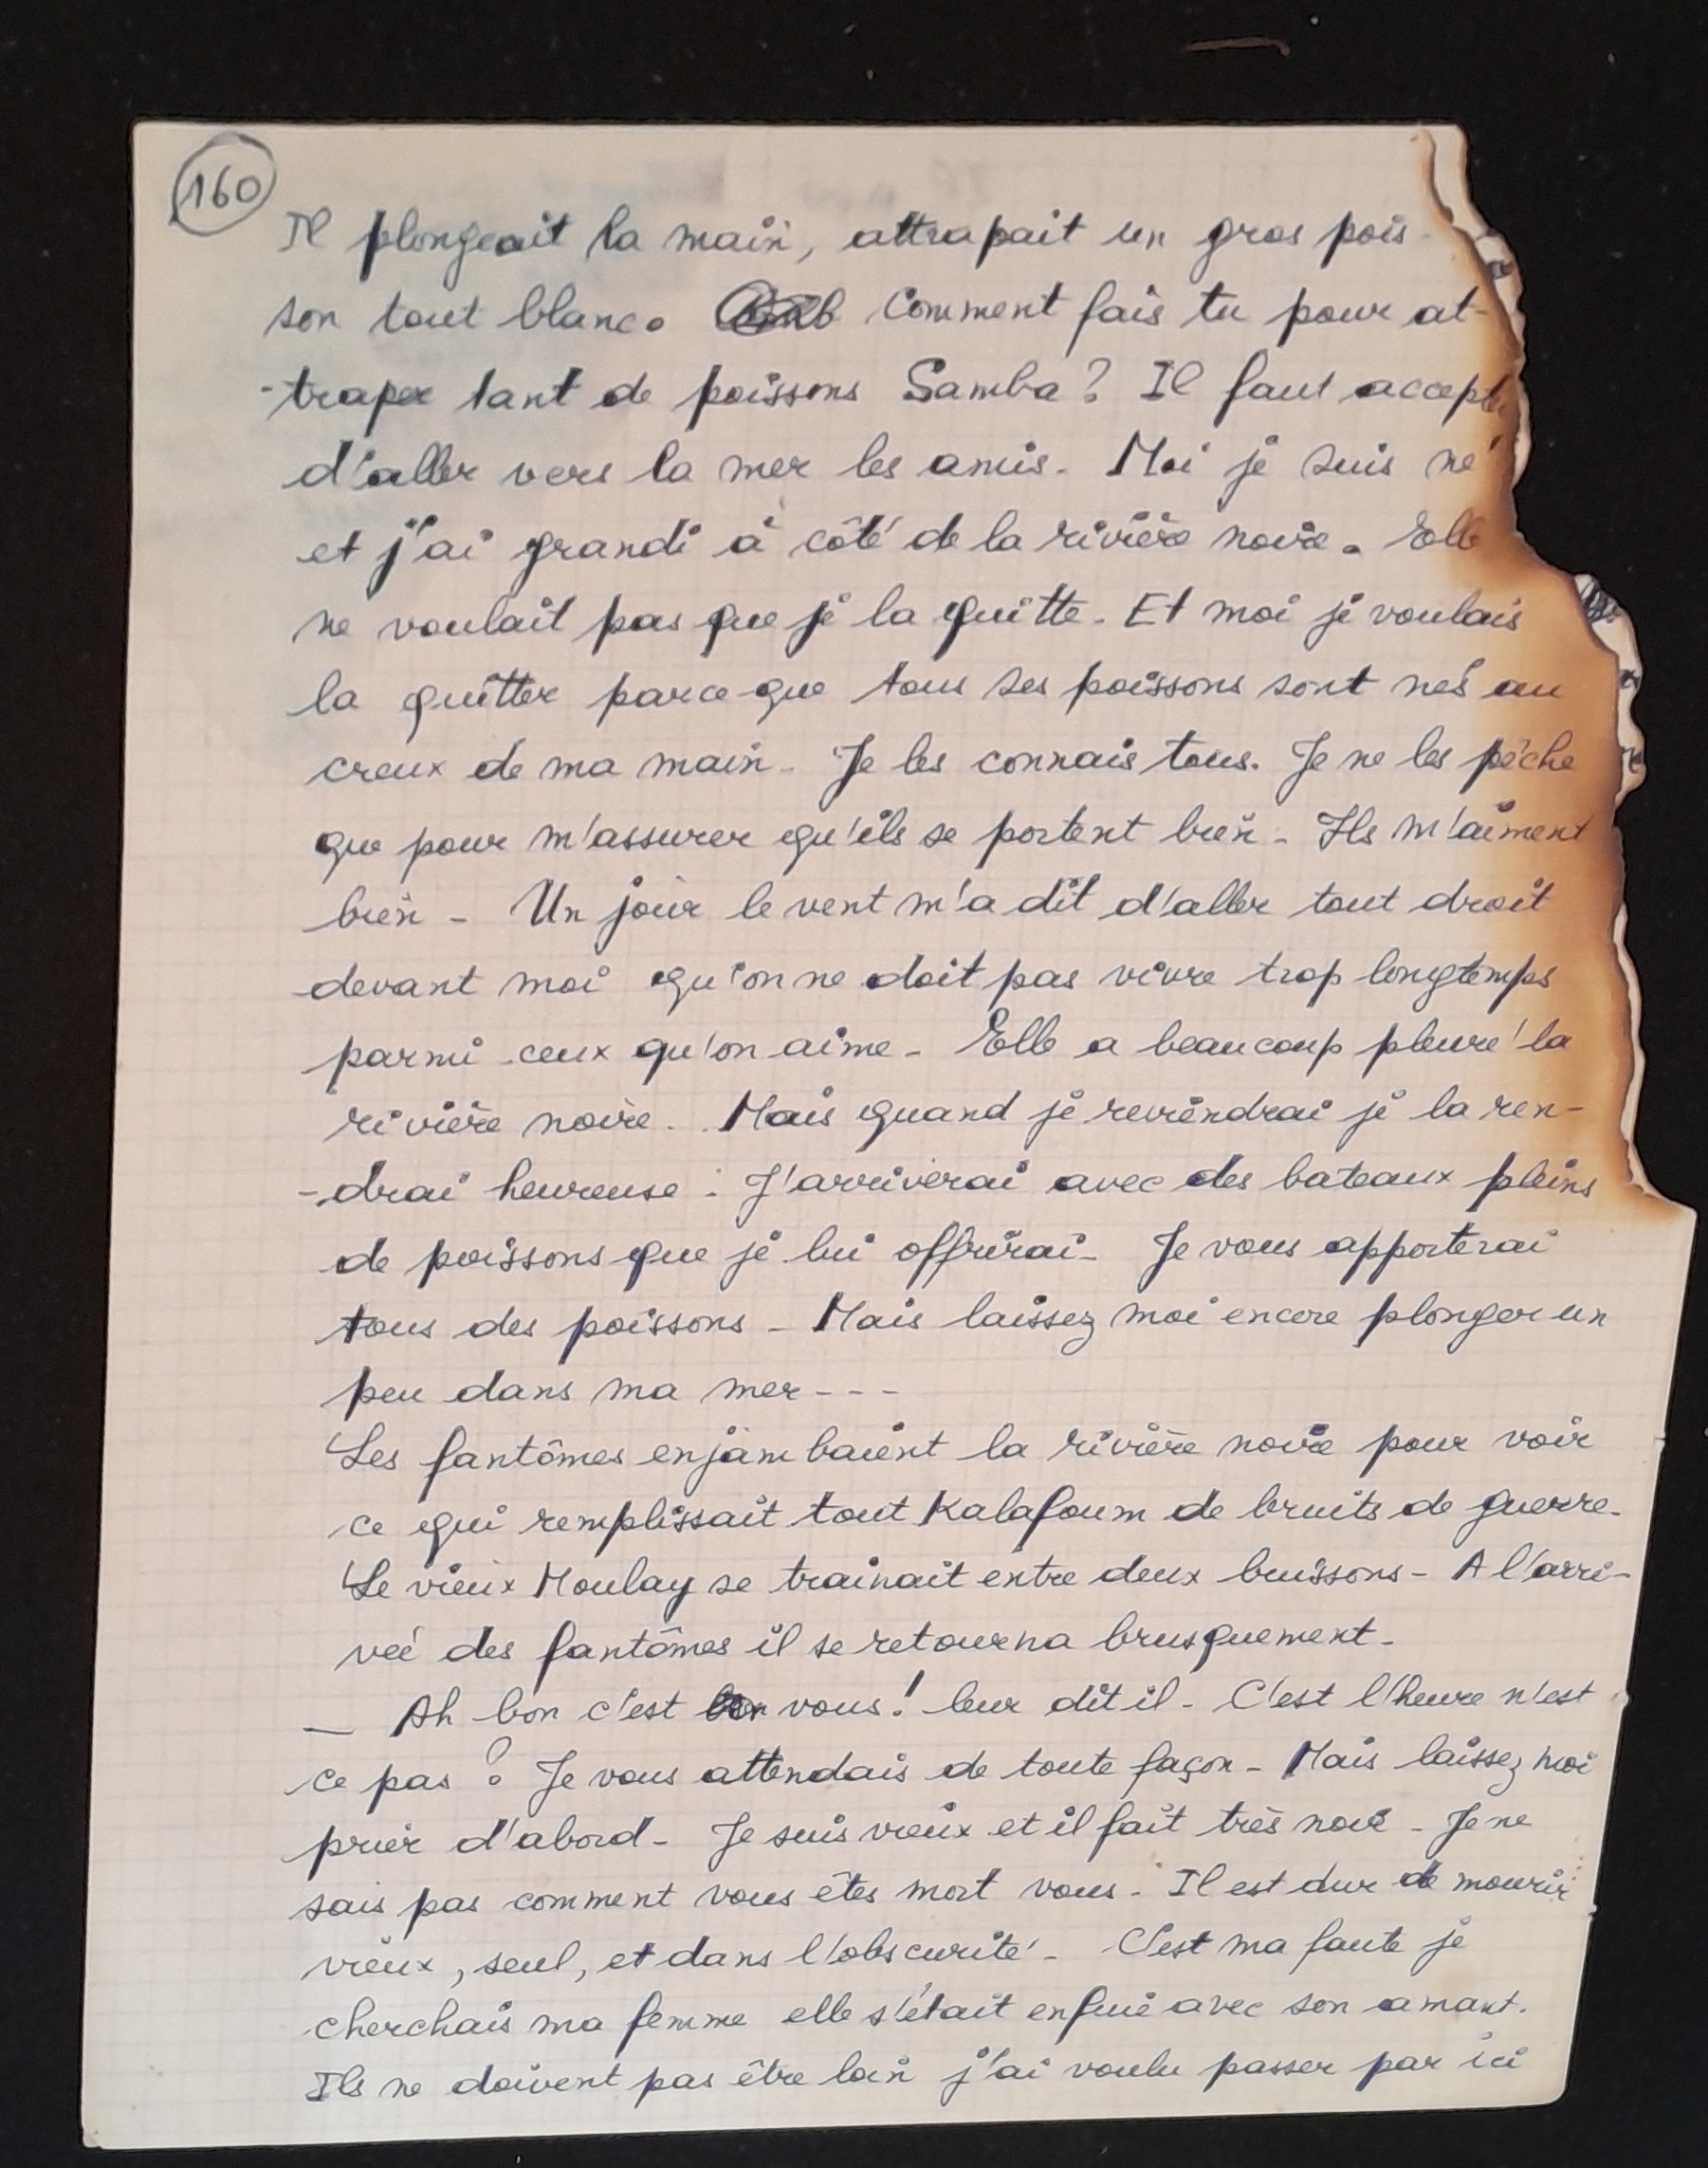 160
Il plongeait la main, attrapait un gros pois-
son tout blanc. Comment fais tu pour at-
-traper tant de poissons Samba ? Il faut accepte
d'aller vers la mer les amis. Moi je suis né
et j'ai grandi à côté de la rivière noire. Elle
ne voulait pas que je la quitte. Et moi je voulais
la quitter parce que tous ses poissons sont nés au
creux de ma main. Je les connais tous. Je ne les pêche
que pour m'assurer qu'ils se portent bien. Ils m'aiment
bien - Un jour le vent m'a dit d'aller tout droit
devant moi qu'on ne doit pas vivre trop longtemps
parmi ceux qu'on aime - Elle a beaucoup pleuré la
rivière noire. Mais quand je reviendrai je la ren-
-drai heureuse : J'arriverai avec des bateaux pleins
de poissons que je lui offrirai - Je vous apporterai
tous des poissons - Mais laissez moi encore plonger un
peu dans ma mer - - -
Les fantômes enjambaient la rivière noire pour voir
ce qui remplissait tout Kalafoum de bruits de guerre.
Le vieux Moulay se trainait entre deux buissons - A l'arri-
vée des fantômes il se retourna brusquement -
_ Ah bon c'est vous ! leur dit il - C'est l'heure n'est
ce pas ? Je vous attendais de toute façon - Mais laissez moi
prier d'abord - Je suis vieux et il fait très noir - Je ne
sais pas comment vous êtes mort vous. Il est dur de mourir
vieux, seul, et dans l'obscurité - C'est ma faute je
cherchais ma femme elle s'était enfuie avec son amant.
Ils ne doivent pas être loin j'ai voulu passer par ici